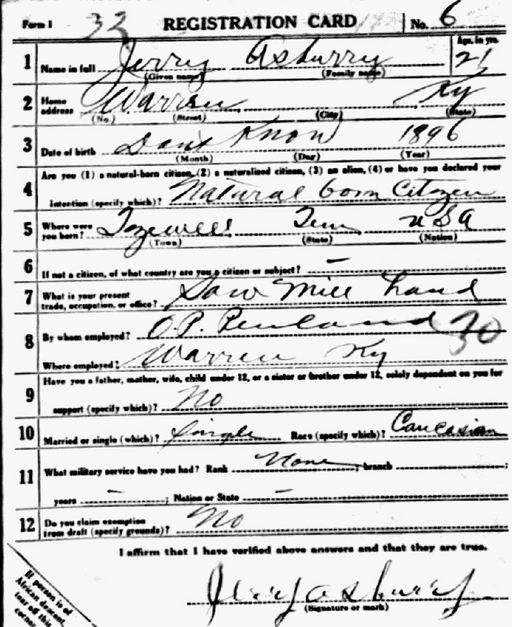 Form 1 32 REGISTRATION CARD No. 6
1 Name in full Jerry Asburry Age, in yrs. 21
(Given name) (Family name)
2 Home address Warren Ky
(No.) (Street) (City) (State)
3 Date of birth Dont Know 1896
(Month) (Day) (Year)
4 Are you (1) a natural-born citizen, (2) a naturalized citizen, (3) an alien, (4) or have you declared your
intention (specify which)? Natural born Citozen
5 Where were you born? Tazewell Ten USA
(Town) (State) (Nation)
6 If not a citizen, of what country are you a citizen or subject? –
7 What is your present trade, occupation, or office? Saw Mill hand
8 By whom employed? O.P. Penland 30
Where employed? Warren Ky
9 Have you a father, mother, wife, child under 12, or a sister or brother under 12, solely dependent on you for
support (specify which)? No
10 Married or single (which)? Single Race (specify which)? Caucasian
11 What military service have you had? Rank None ; branch ;
years – ; Nation or State –
12 Do you claim exemption from draft (specify grounds)? No
I affirm that I have verified above answers and that they are true.
Jerry Asburry
(Signature or mark)
If person is of
African descent,
tear off this
corner